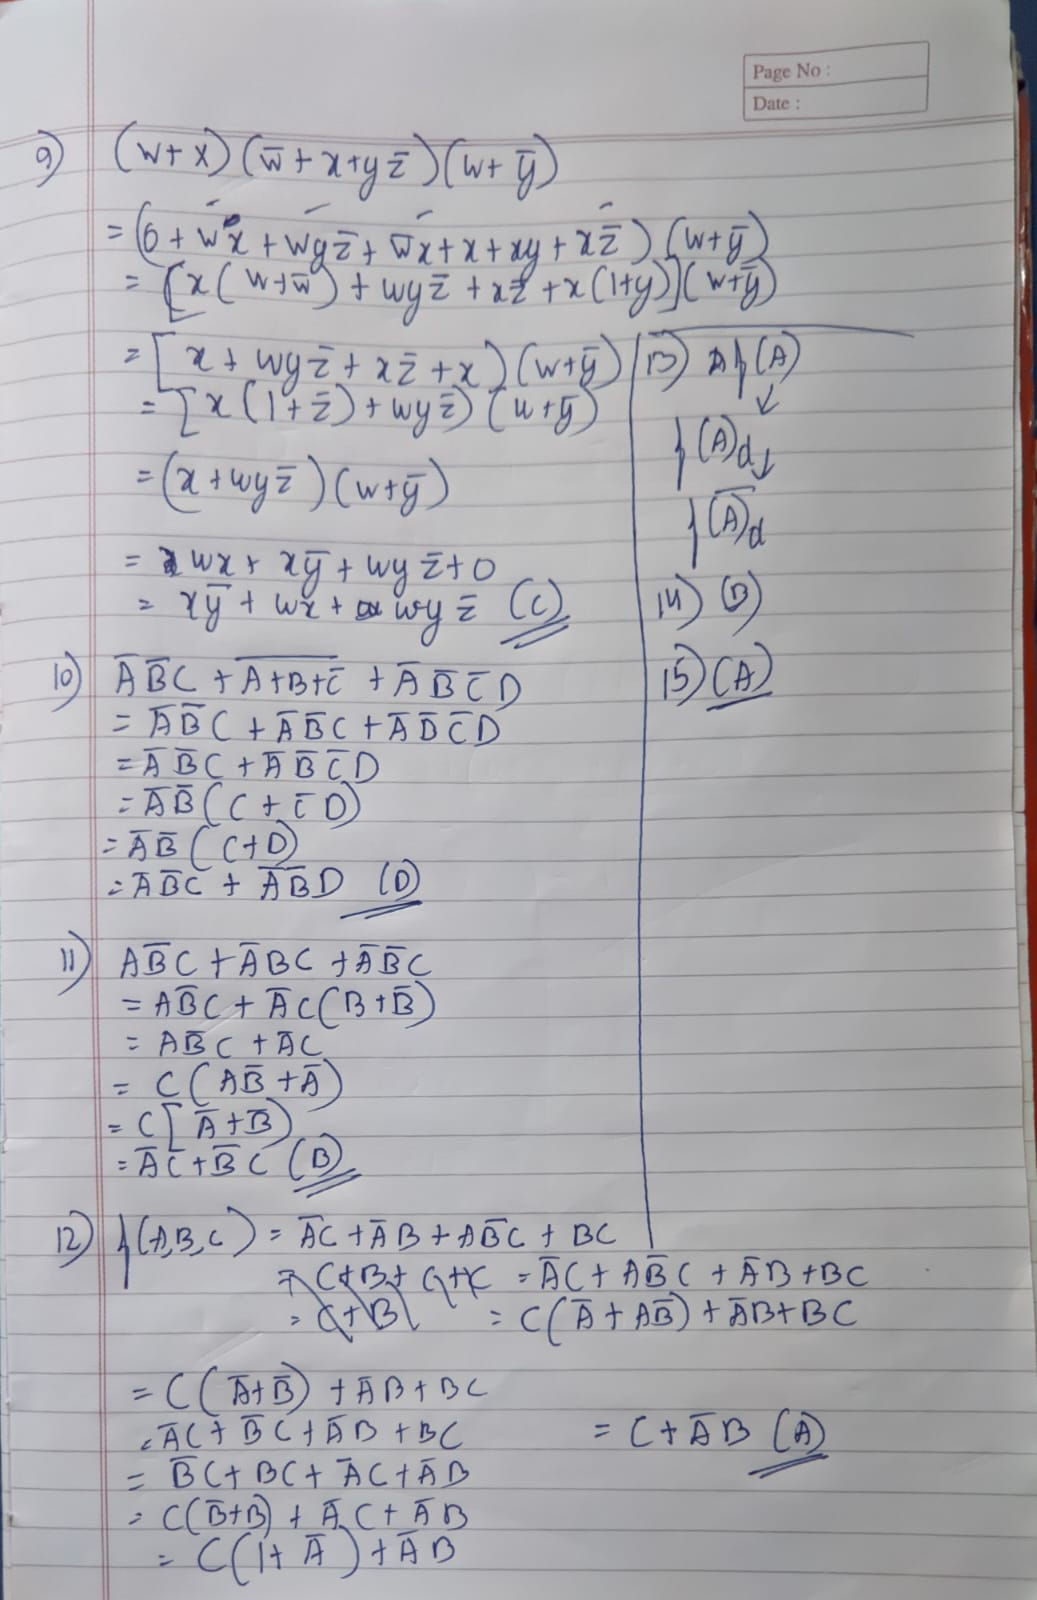 Page No :
Date :
9) (w+x)(w̅+x+yz̅)(w+y̅)
=(0+wx+wyz̅+w̅x+x+xy+xz̅)(w+y̅)
=[x(w+w̅)+wyz̅+xz̅+x(1+y)](w+y̅)
=[x+wyz̅+xz̅+x)(w+y̅)
=[x(1+z̅)+wyz̅)(w+y̅)
=(x+wyz̅)(w+y̅)
= wx+xy̅+wyz̅+0
= xy̅+wx+wyz̅ (C)
10) A̅B̅C + \overline{A+B+C̅} + A̅B̅C̅D
= A̅B̅C + A̅B̅C + A̅B̅C̅D
= A̅B̅C + A̅B̅C̅D
= A̅B̅(C+C̅D)
= A̅B̅(C+D)
= A̅B̅C + A̅B̅D (D)
11) AB̅C + A̅BC + A̅B̅C
= AB̅C + A̅C(B+B̅)
= AB̅C + A̅C
= C(AB̅+A̅)
= C[A̅+B̅)
= A̅C+B̅C (B)
12) f(A,B,C) = A̅C + A̅B + AB̅C + BC
= A̅C + AB̅C + A̅B + BC
= C+B = C(A̅+AB̅) + A̅B+BC
= C(A̅+B̅) + A̅B+BC
= A̅C+B̅C+A̅B+BC
= B̅C+BC+A̅C+A̅B
= C(B̅+B) + A̅C + A̅B
= C(1+A̅) + A̅B
= C+A̅B (A)
13) (A)
f(A)d
f(A̅)d
14) (B)
15) (A)